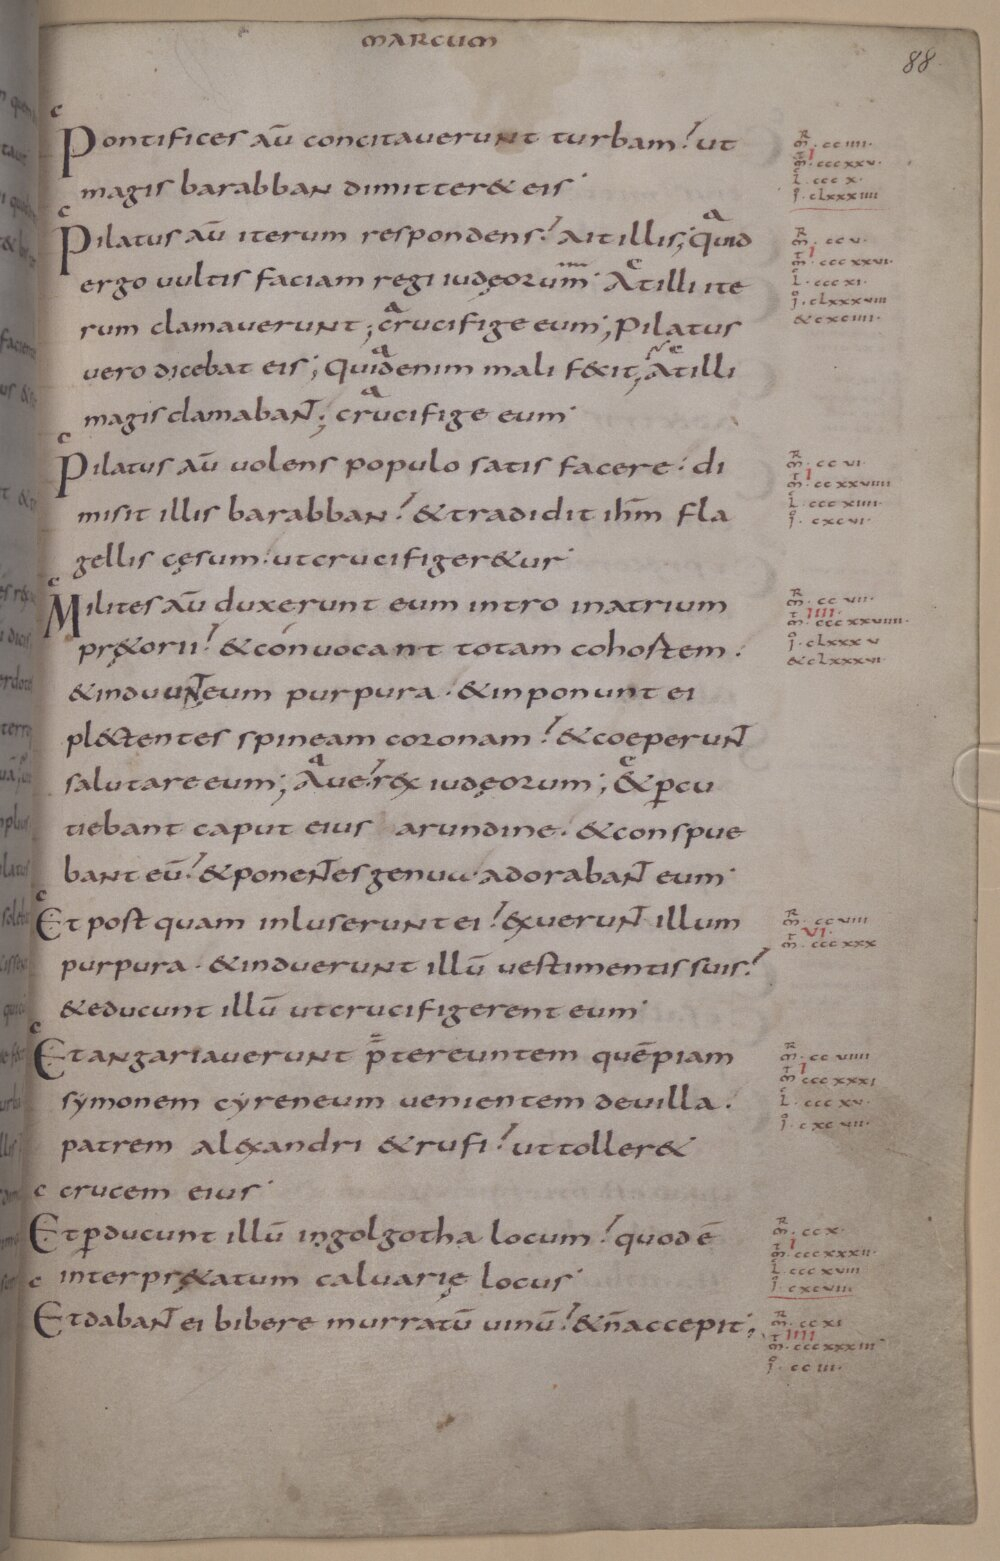 MARCUM
88
c
Pontifices aū concitaverunt turbam? ut
magis barabban dimitter& eis
c
Pilatus aū iterum respondens? Ait illis; Quid
ergo vultis faciam regi iudęorum Atilli ite
rum clamaverunt; crucifige eum; Pilatus
vero dicebat eis; Quid enim mali fecit; Atilli
magis clamabant; crucifige eum
c
Pilatus aū volens populo satis facere. di
misit illis barabban? & tradidit ihm̄ fla
gellis cęsum. ut crucifiger&ur
c
Milites aū duxerunt eum intro in atrium
pr&orii? & convocant totam cohortem.
& induunt eum purpura. & inponunt ei
pl&tentes spineam coronam? & coeperunt
salutare eum; Ave rex iudęorum; & p̄cu
tiebant caput eius arundine. & conspue
bant eū? & ponentes genua adorabant eum
c
Et postquam inluserunt ei? exuerunt illum
purpura. & induerunt illū vestimentis suis?
& educunt illū ut crucifigerent eum
c
Et angariaverunt p̄tereuntem quēpiam
symonem cyreneum venientem devilla.
patrem alexandri & rufi? ut toller&
crucem eius
c
Et p̄ducunt illū in golgotha locum? quod ē
interpr&atum calvarię locus
c
Et dabant ei bibere murratū vinū? & n̄ accepit;
R
m . cc iiii.
I
m . cccxxv.
L . ccc x.
j . clxxxiiii
R
m . cc v.
I
m . cccxxvi.
L . ccc xi.
j . clxxxviii
& cxciiii.
R
m . cc vi.
I
m . ccxxviiii
L . ccc xiiii.
j . cxcvi.
R
m . cc vii.
IIII.
m . cccxxviiii.
j . clxxx v
& clxxxvi
R
m . cc viii
VI.
m . cccxxx
R
m . cc viiii
I
m cccxxxi
L . ccc xv.
j . cxcvii.
R
m . cc x.
I
m . cccxxxii.
L . ccc xviii
j . cxcviii
R
m . cc xi
IIII
m . cccxxxiii
j . cc iii.